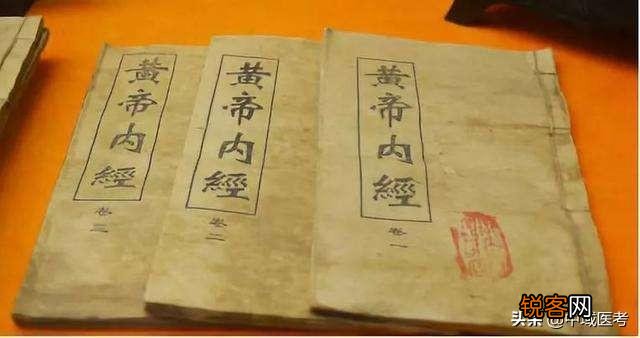 黄帝内經
卷三
黄帝内經
卷二
黄帝内經
卷一
锐客网
头条 @中域医考